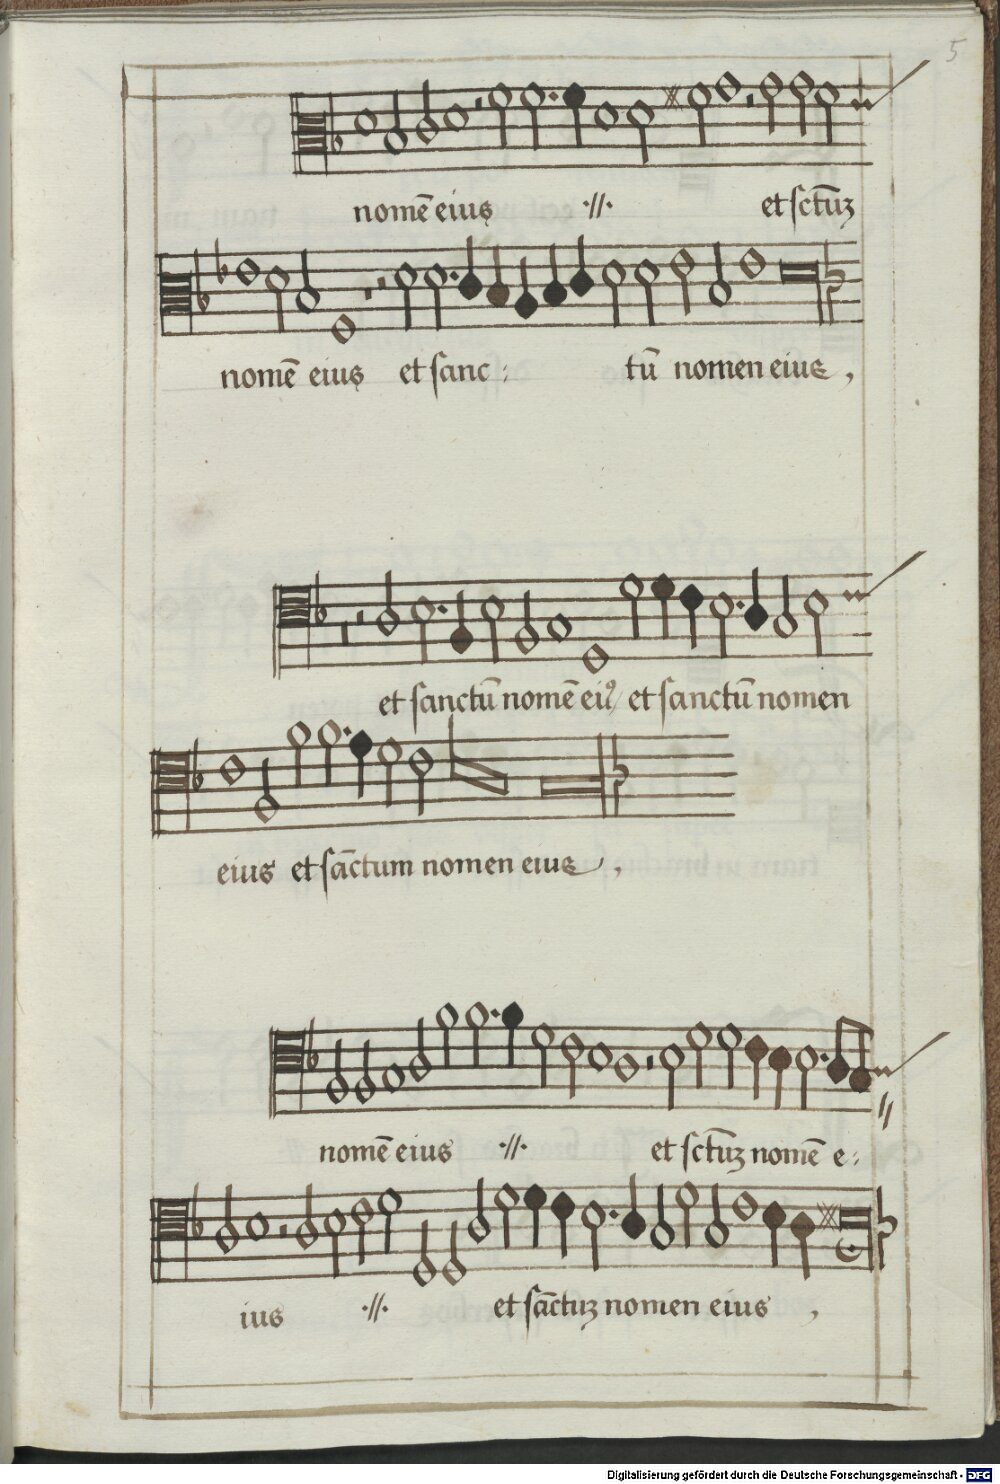 5
nomē eius ·//· et sctūz
nomē eius et sanc- tū nomen eius,
et sanctū nomē eiꝰ/ et sanctū nomen
eius et sāctum nomen eius,
nomē eius ·//· et sctūz nomē e-
ius ·//· et sāctuz nomen eius,
Digitalisierung gefördert durch die Deutsche Forschungsgemeinschaft - DFG